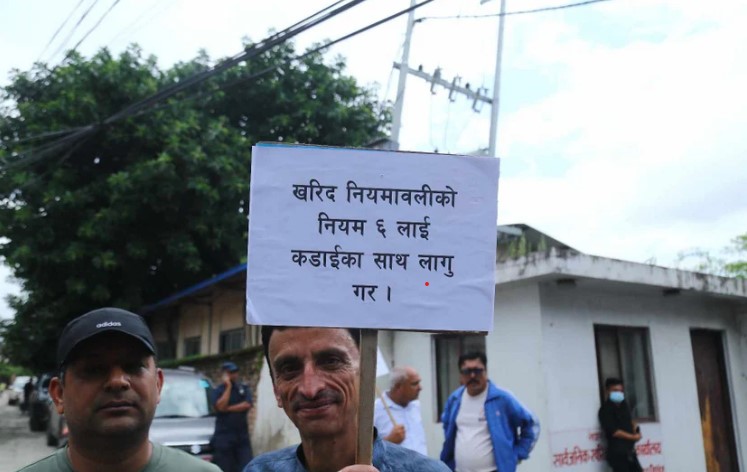 adidas
खरिद नियमावलीको
नियम ६ लाई
कडाईका साथ लागु
गर ।
सार्वजनिक